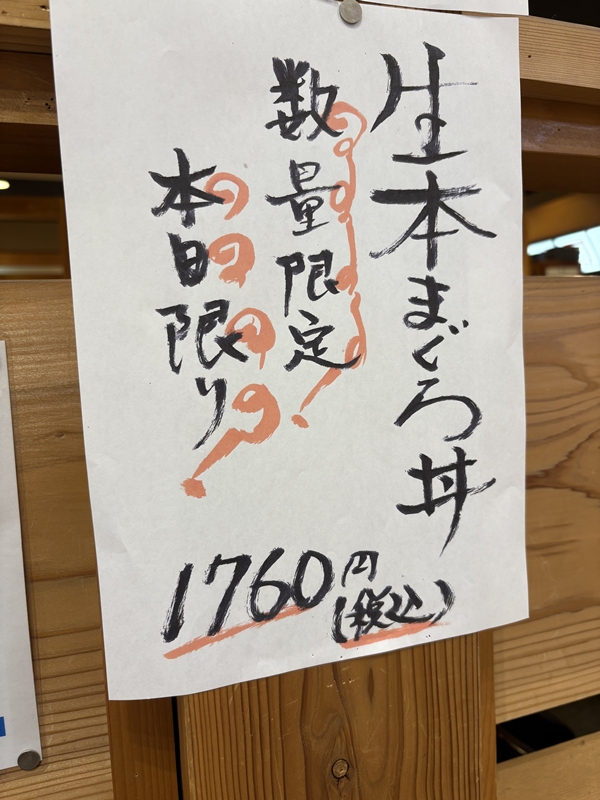 生本まぐろ丼
数量限定
本日限り
1760円
(税込)